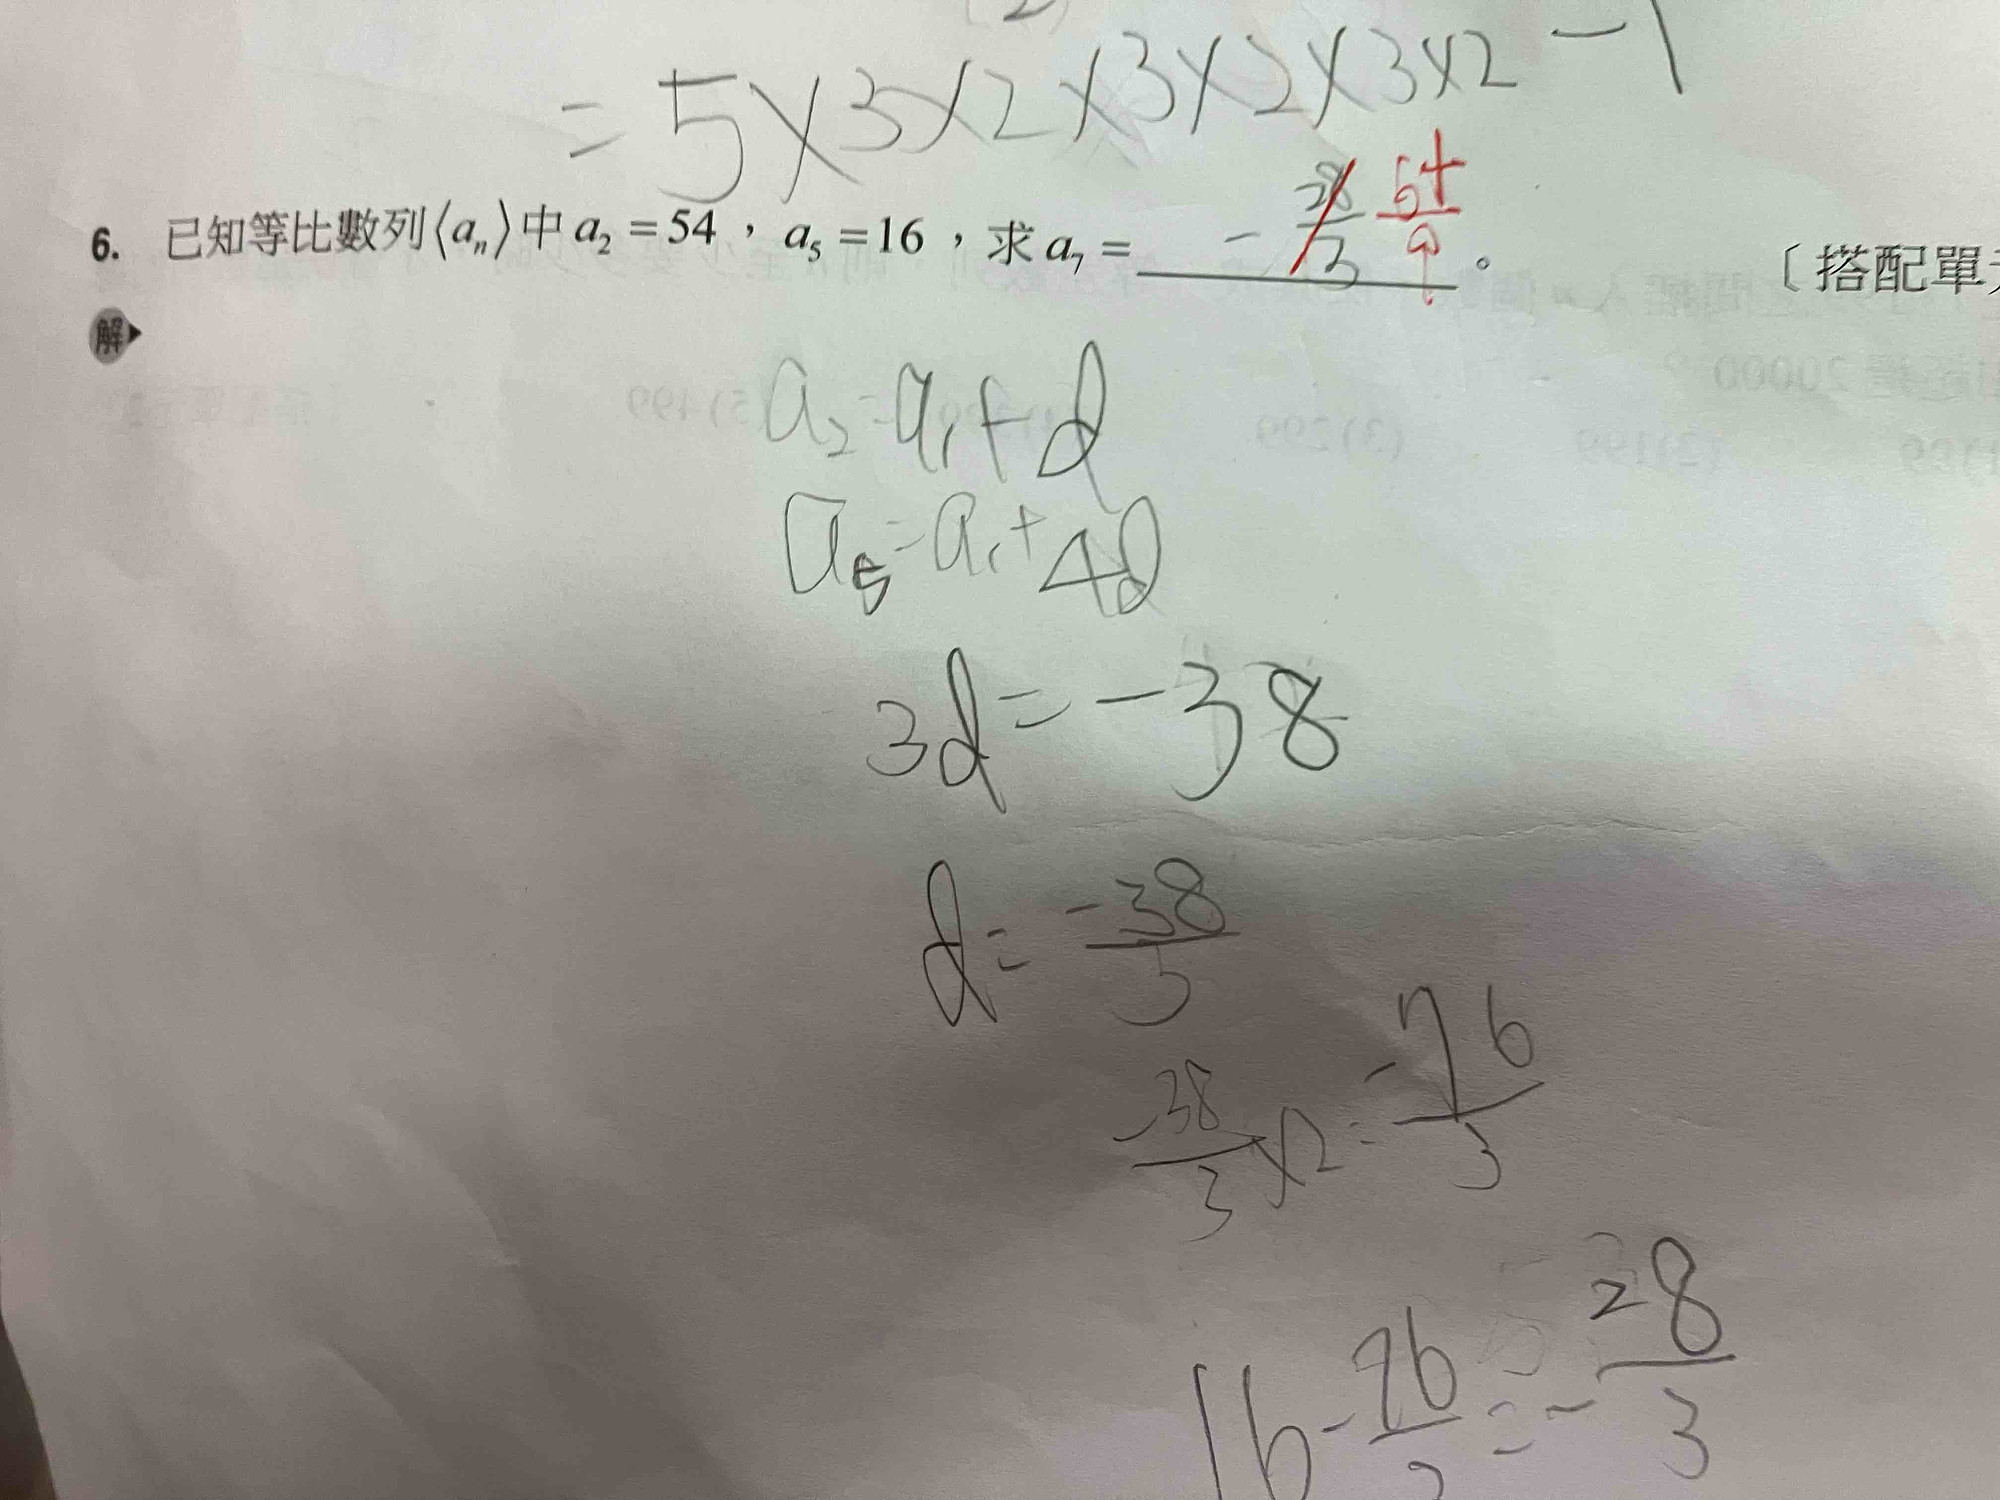 = 5×3×2×3×2×3×2-1
6. 已知等比數列⟨aₙ⟩中 a₂=54，a₅=16，求 a₇= -28/3 54/9 。 〔搭配單
解
a₂=a₁+d
a₅=a₁+4d
3d=-38
d=-38/3
-38/3×2=-76/3
16-76/3=-28/3